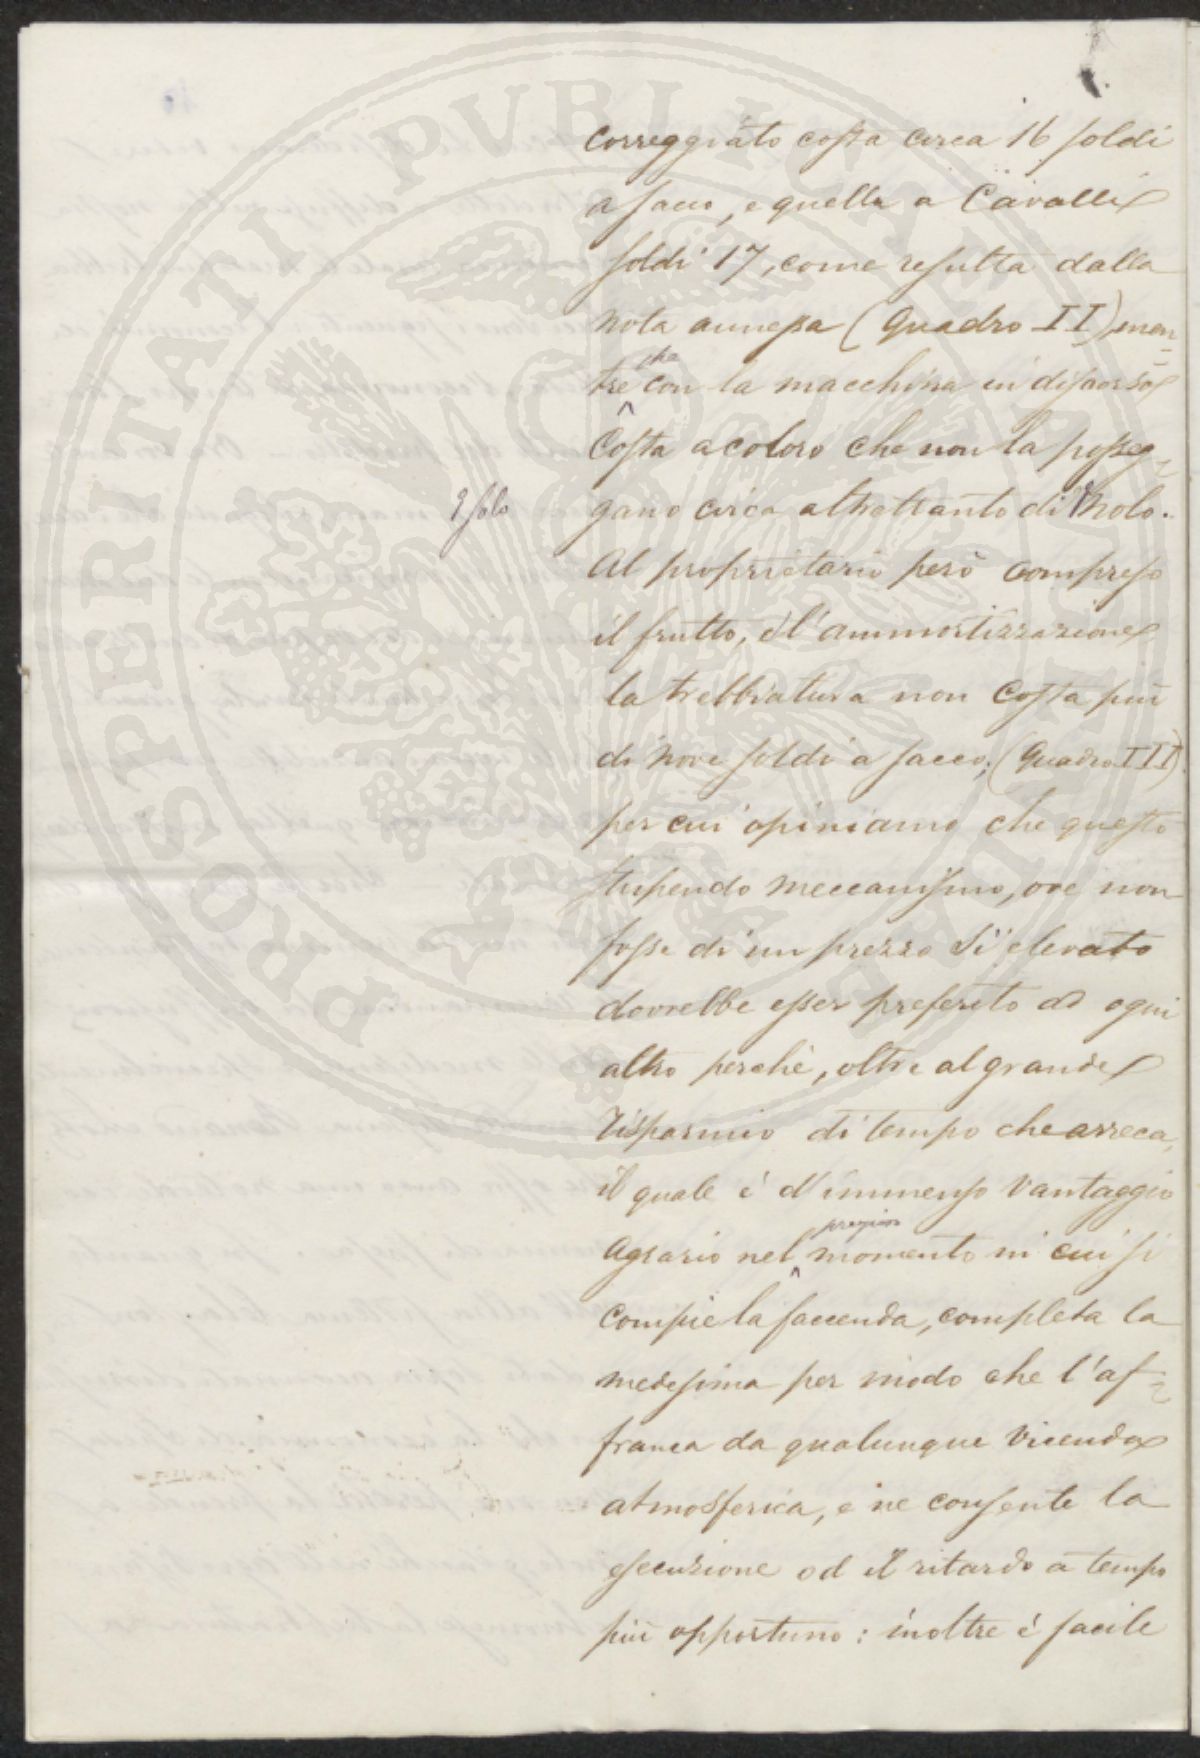 PROSPERITATI PVBLICAE AVGENDAE
correggiato costa circa 16 soldi
a sacco, e quella a Cavalli
soldi 17, come resulta dalla
nota annessa (Quadro II), men=
tre che con la macchina in discorso
Costa a coloro che non la posseg=
gano circa altrettanto di Nolo.
Al proprietario però compreso
il frutto, e l'ammortizzazione
la trebbiatura non Costa più
di nove soldi a sacco; (Quadro III)
per cui opiniamo che questo
stupendo meccanismo, ove non
fosse di un prezzo Sì elevato
dovrebbe esser preferito ad ogni
altro perchè, oltre al grande
risparmio di tempo che arreca,
il quale è d'immenso Vantaggio
Agrario nel prezioso momento in cui si
Compie la faccenda, completa la
medesima per modo che l'af=
franca da qualunque Vicenda
atmosferica, e ne consente la
esecuzione od il ritardo a tempo
più opportuno: inoltre è facile